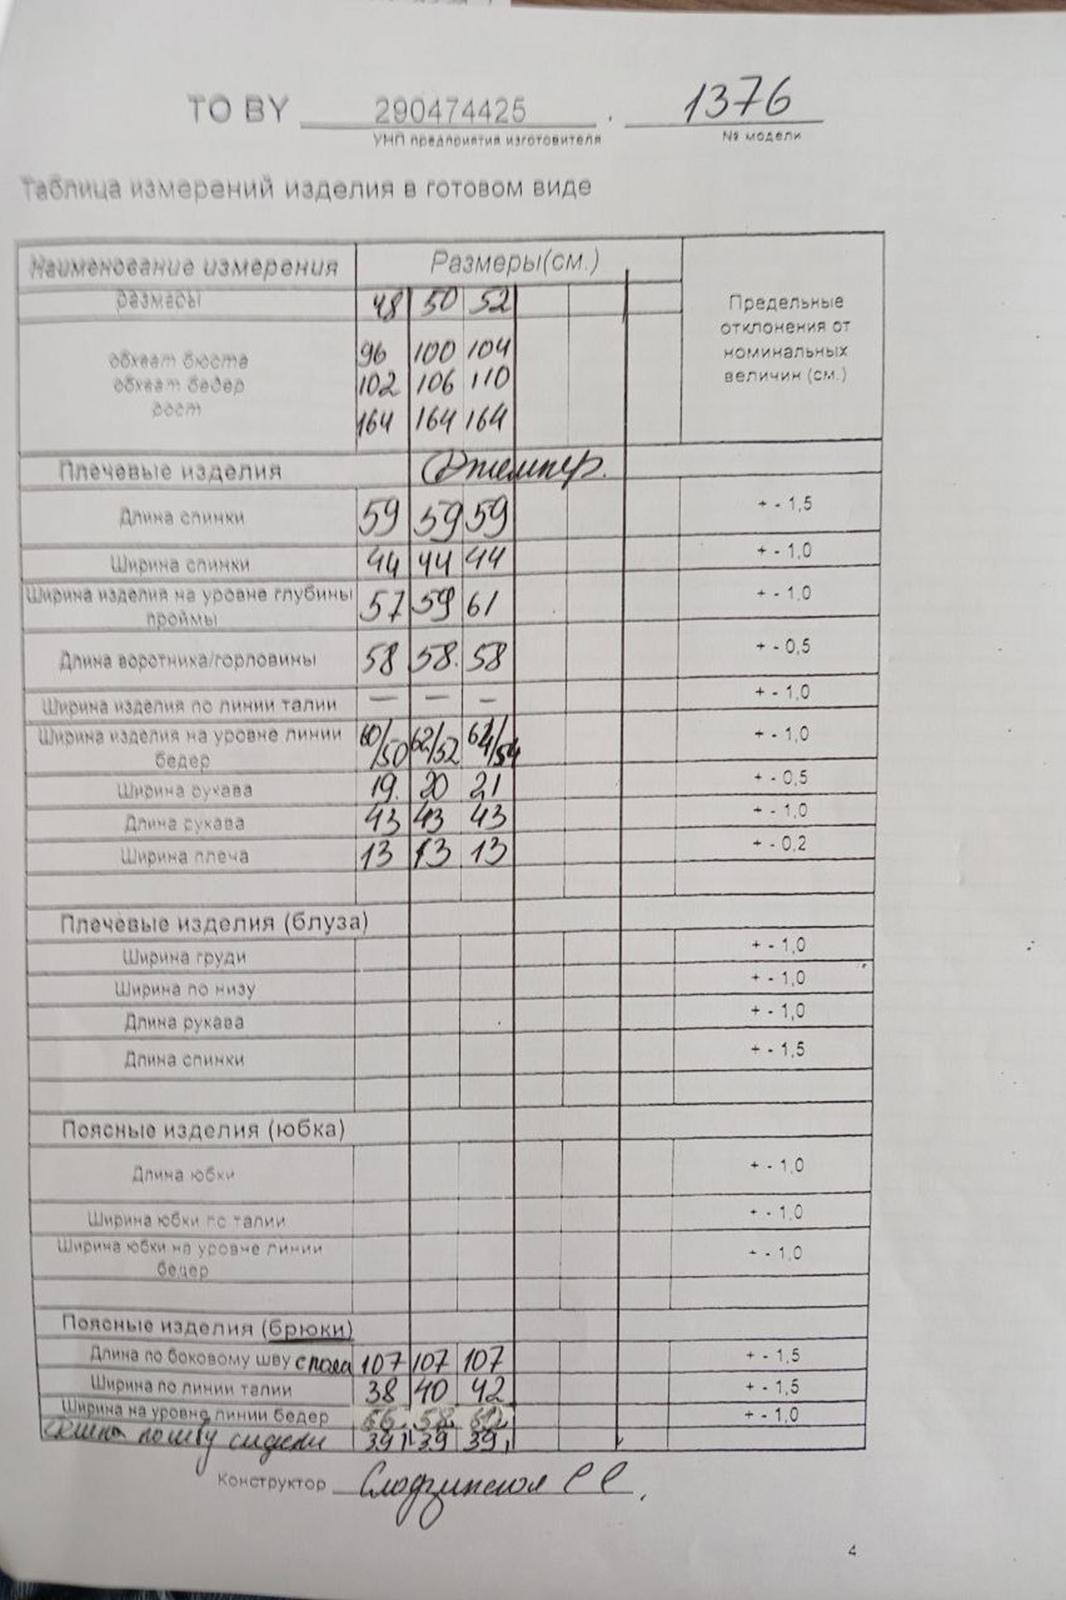 ТО BY 290474425 . 1376
УНП предприятия изготовителя № модели
Таблица измерений изделия в готовом виде
Наименование измерения Размеры(см.) Предельные отклонения от номинальных величин (см.)
размеры 48 50 52
обхват бюста 96 100 104
обхват бедер 102 106 110
рост 164 164 164
Плечевые изделия Джемпер.
Длина спинки 59 59 59 + - 1,5
Ширина спинки 44 44 44 + - 1,0
Ширина изделия на уровне глубины проймы 57 59 61 + - 1,0
Длина воротника/горловины 58 58. 58 + - 0,5
Ширина изделия по линии талии — — — + - 1,0
Ширина изделия на уровне линии бедер 60/50 62/52 64/54 + - 1,0
Ширина рукава 19. 20 21 + - 0,5
Длина рукава 43 43 43 + - 1,0
Ширина плеча 13 13 13 + - 0,2
Плечевые изделия (блуза)
Ширина груди + - 1,0
Ширина по низу + - 1,0
Длина рукава + - 1,0
Длина спинки + - 1,5
Поясные изделия (юбка)
Длина юбки + - 1,0
Ширина юбки по талии + - 1,0
Ширина юбки на уровне линии бедер + - 1,0
Поясные изделия (брюки)
Длина по боковому шву с пояса 107 107 107 + - 1,5
Ширина по линии талии 38 40 42 + - 1,5
Ширина на уровне линии бедер + - 1,0
по шву сидения 39 39 39
Конструктор
4